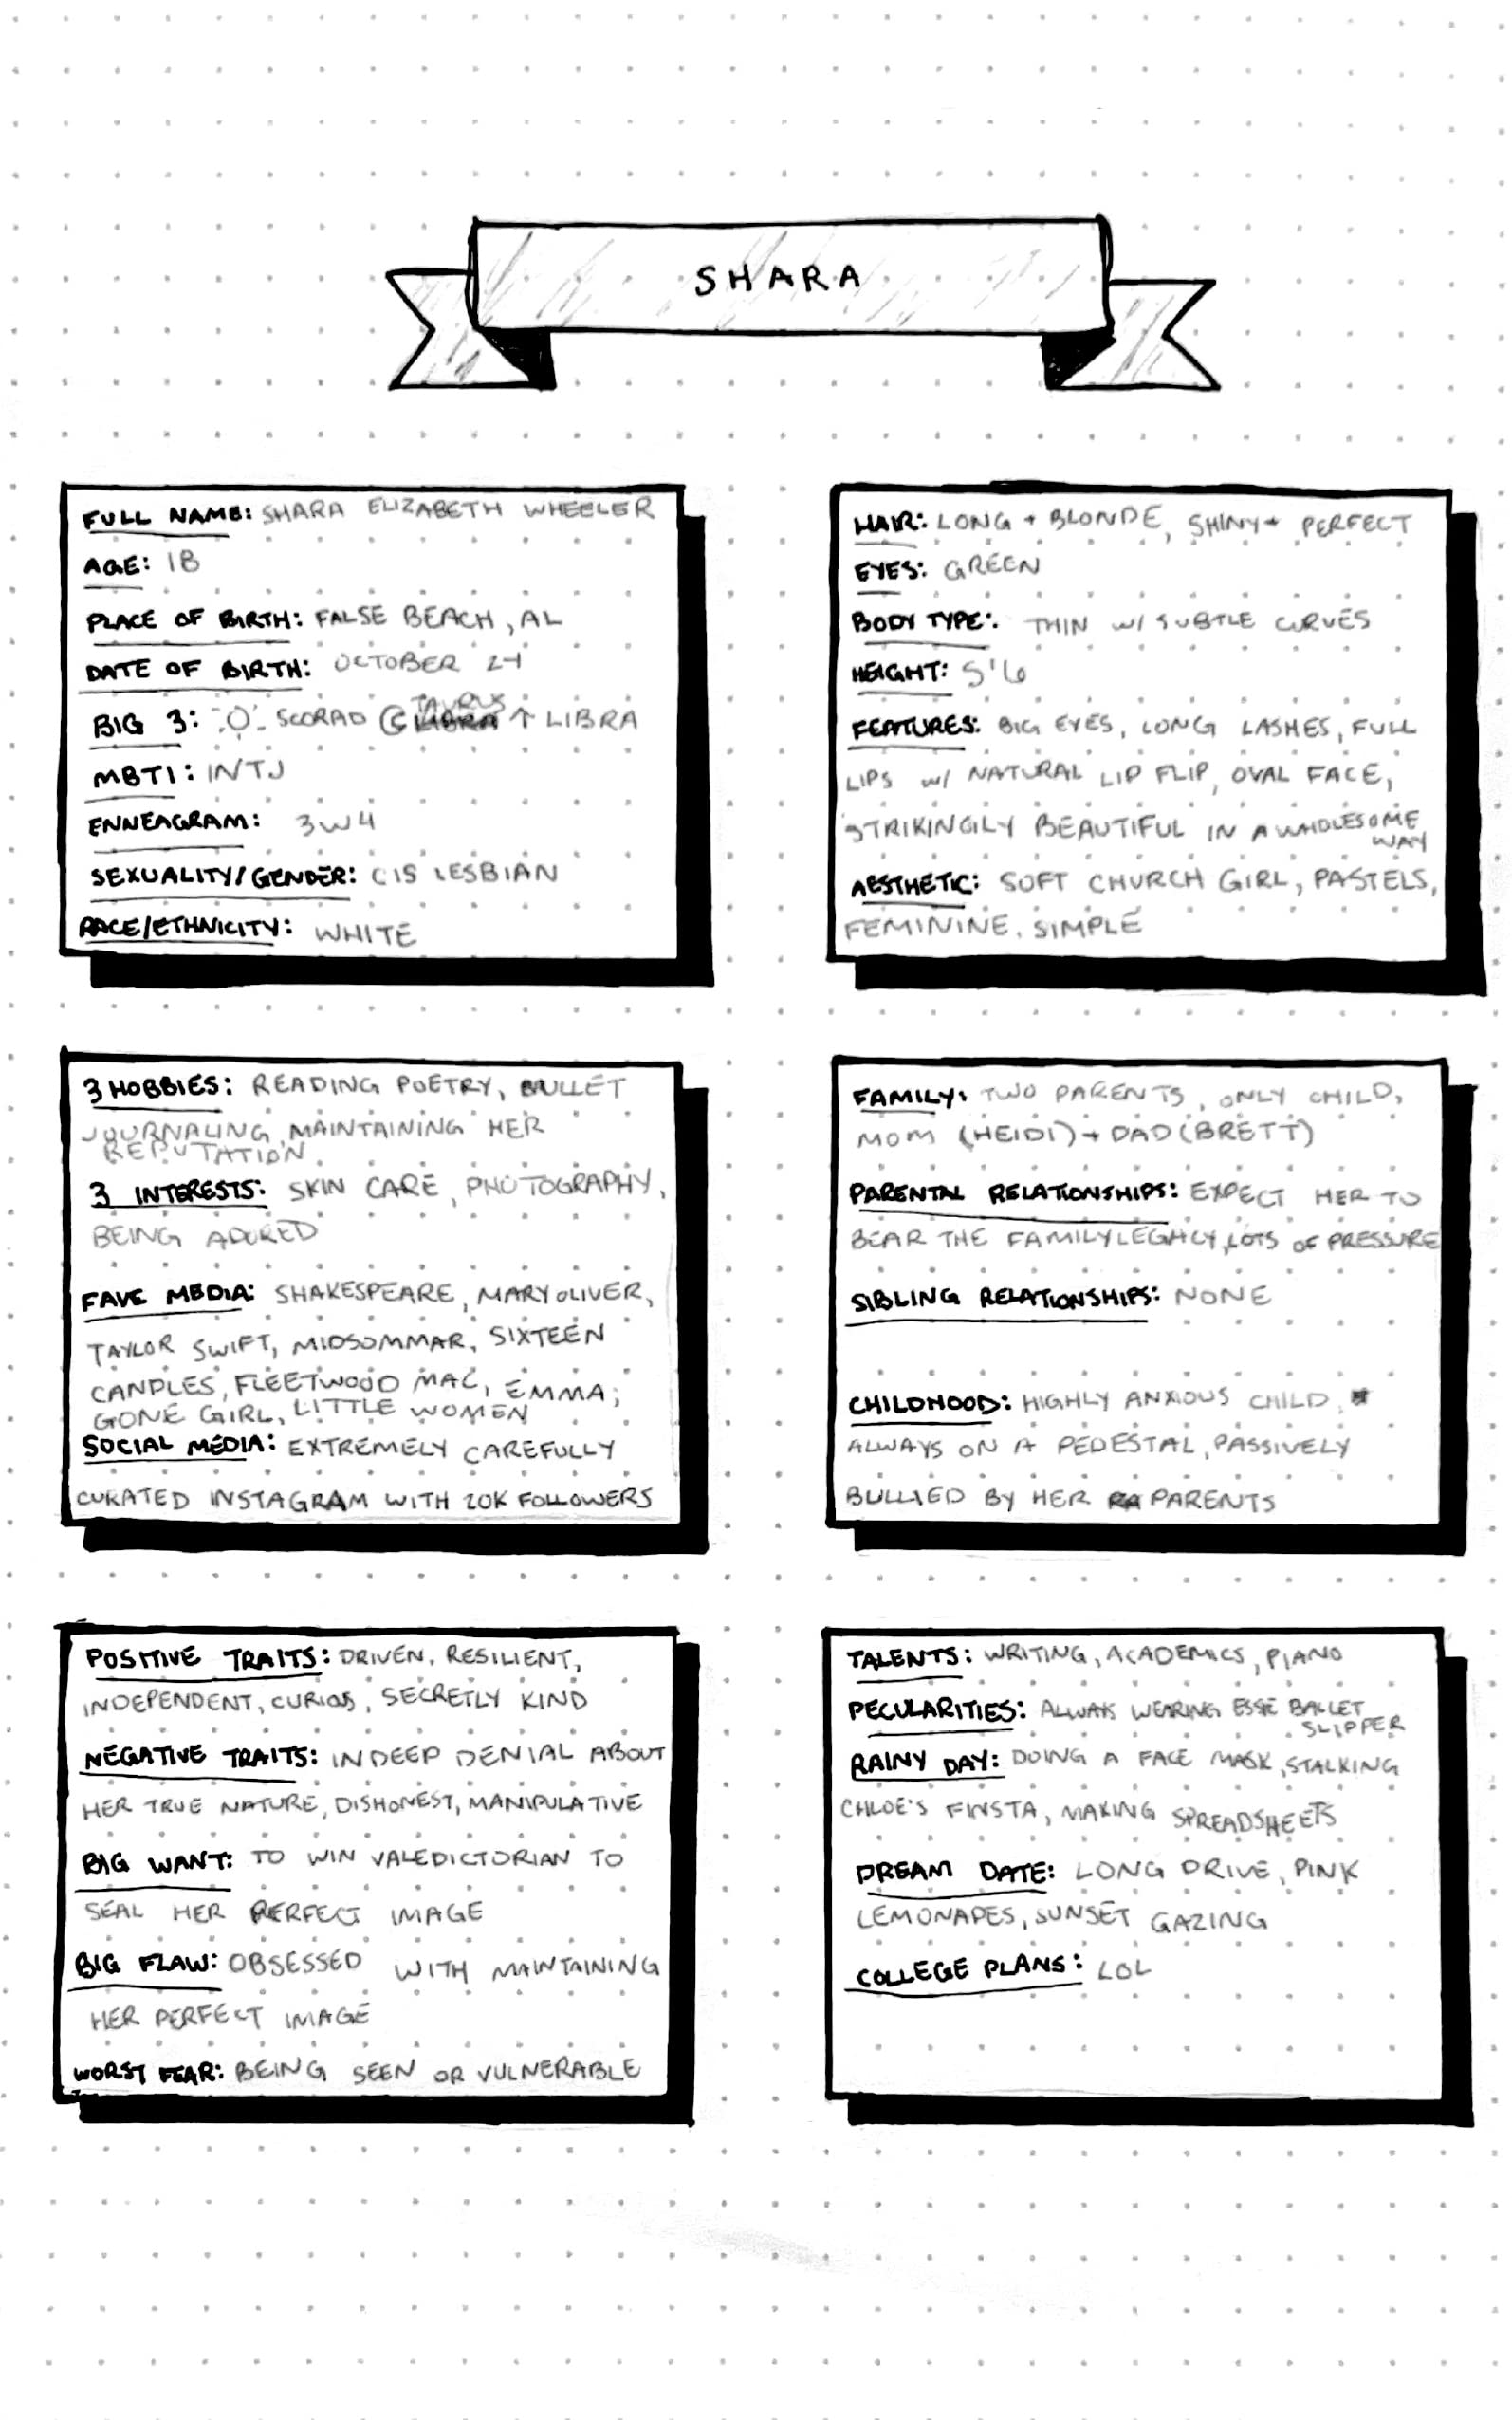 SHARA
FULL NAME: SHARA ELIZABETH WHEELER
AGE: 18
PLACE OF BIRTH: FALSE BEACH, AL
DATE OF BIRTH: OCTOBER 24
TAURUS
BIG 3: SCORPIO ↑ LIBRA
MBTI: INTJ
ENNEAGRAM: 3W4
SEXUALITY/GENDER: CIS LESBIAN
RACE/ETHNICITY: WHITE
HAIR: LONG + BLONDE, SHINY + PERFECT
EYES: GREEN
BODY TYPE: THIN W/ SUBTLE CURVES
HEIGHT: 5'6
FEATURES: BIG EYES, LONG LASHES, FULL
LIPS W/ NATURAL LIP FLIP, OVAL FACE,
STRIKINGILY BEAUTIFUL IN A WHOLESOME
WAY
AESTHETIC: SOFT CHURCH GIRL, PASTELS,
FEMININE, SIMPLE
3 HOBBIES: READING POETRY, BULLET
JOURNALING, MAINTAINING HER
REPUTATION
3 INTERESTS: SKIN CARE, PHOTOGRAPHY,
BEING ADORED
FAVE MEDIA: SHAKESPEARE, MARY OLIVER,
TAYLOR SWIFT, MIDSOMMAR, SIXTEEN
CANDLES, FLEETWOOD MAC, EMMA,
GONE GIRL, LITTLE WOMEN
SOCIAL MEDIA: EXTREMELY CAREFULLY
CURATED INSTAGRAM WITH 20K FOLLOWERS
FAMILY: TWO PARENTS, ONLY CHILD,
MOM (HEIDI) + DAD (BRETT)
PARENTAL RELATIONSHIPS: EXPECT HER TO
BEAR THE FAMILY LEGACY, LOTS OF PRESSURE
SIBLING RELATIONSHIPS: NONE
CHILDHOOD: HIGHLY ANXIOUS CHILD,
ALWAYS ON A PEDESTAL, PASSIVELY
BULLIED BY HER PARENTS
POSITIVE TRAITS: DRIVEN, RESILIENT,
INDEPENDENT, CURIOS, SECRETLY KIND
NEGATIVE TRAITS: IN DEEP DENIAL ABOUT
HER TRUE NATURE, DISHONEST, MANIPULATIVE
BIG WANT: TO WIN VALEDICTORIAN TO
SEAL HER PERFECT IMAGE
BIG FLAW: OBSESSED WITH MAINTAINING
HER PERFECT IMAGE
WORST FEAR: BEING SEEN OR VULNERABLE
TALENTS: WRITING, ACADEMICS, PIANO
PECULARITIES: ALWAYS WEARING ESSIE BALLET
SLIPPER
RAINY DAY: DOING A FACE MASK, STALKING
CHLOE'S FINSTA, MAKING SPREADSHEETS
DREAM DATE: LONG DRIVE, PINK
LEMONADES, SUNSET GAZING
COLLEGE PLANS: LOL